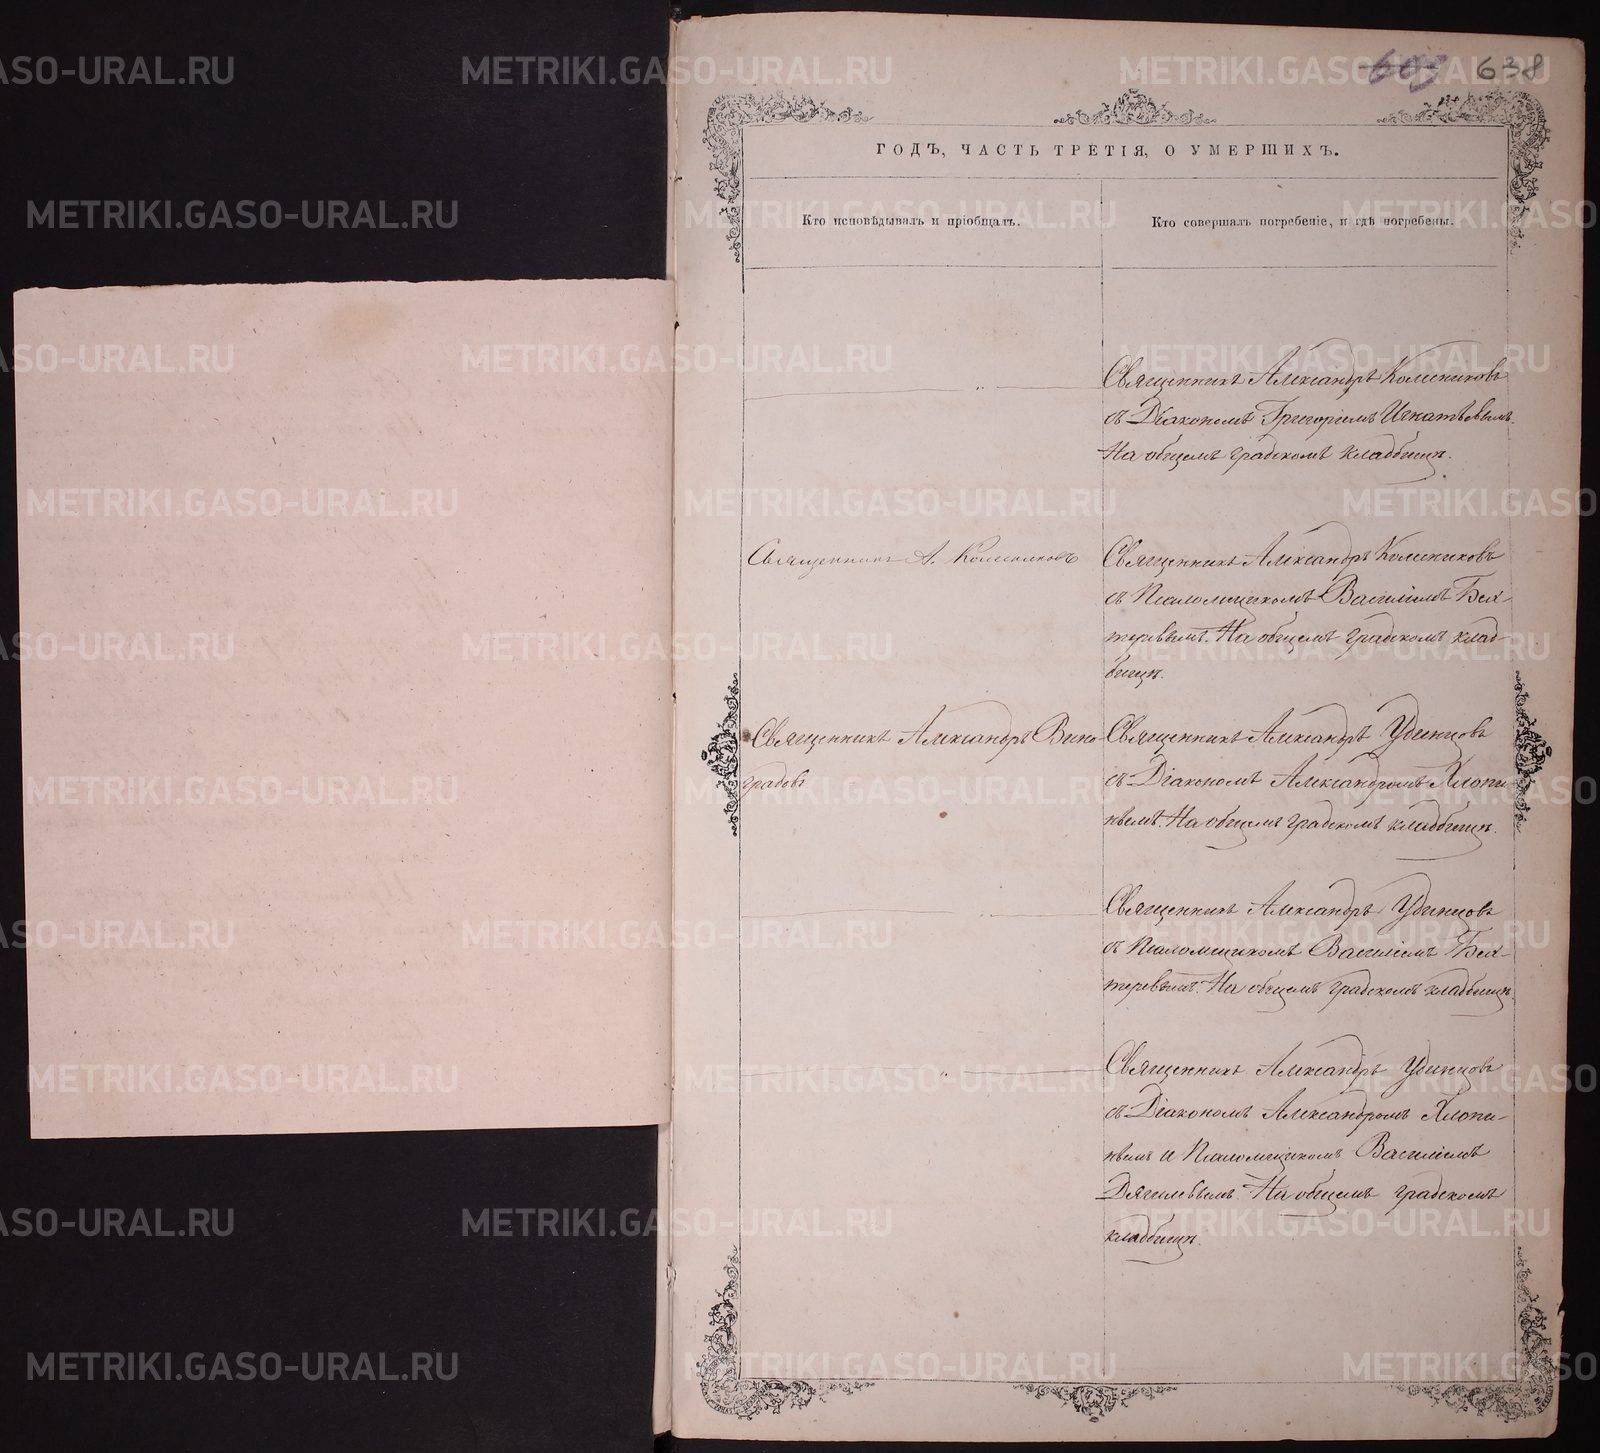 603 638
ГОДЪ, ЧАСТЬ ТРЕТІЯ, О УМЕРШИХЪ.
Кто исповѣдывалъ и пріобщалъ.
Кто совершалъ погребеніе, и гдѣ погребены.
Священникъ Александръ Колесниковъ
съ Діакономъ Григоріемъ Игнатьевымъ.
На общемъ градскомъ кладбищѣ.
Священникъ А. Колесниковъ
Священникъ Александръ Колесниковъ
съ Псаломщикомъ Василіемъ Бех-
теревымъ. На общемъ градскомъ клад-
бищѣ.
Священникъ Александръ Вино
градовъ
Священникъ Александръ Удинцовъ
съ Діакономъ Александромъ Хлопи
нымъ. На общемъ градскомъ кладбищѣ.
Священникъ Александръ Удинцовъ
съ Псаломщикомъ Василіемъ Бех-
теревымъ. На общемъ градскомъ кладбищѣ.
Священникъ Александръ Удинцовъ
съ Діакономъ Александромъ Хлопи-
нымъ и Псаломщикомъ Василіемъ
Дягилевымъ. На общемъ градскомъ
кладбищѣ.
METRIKI.GASO-URAL.RU